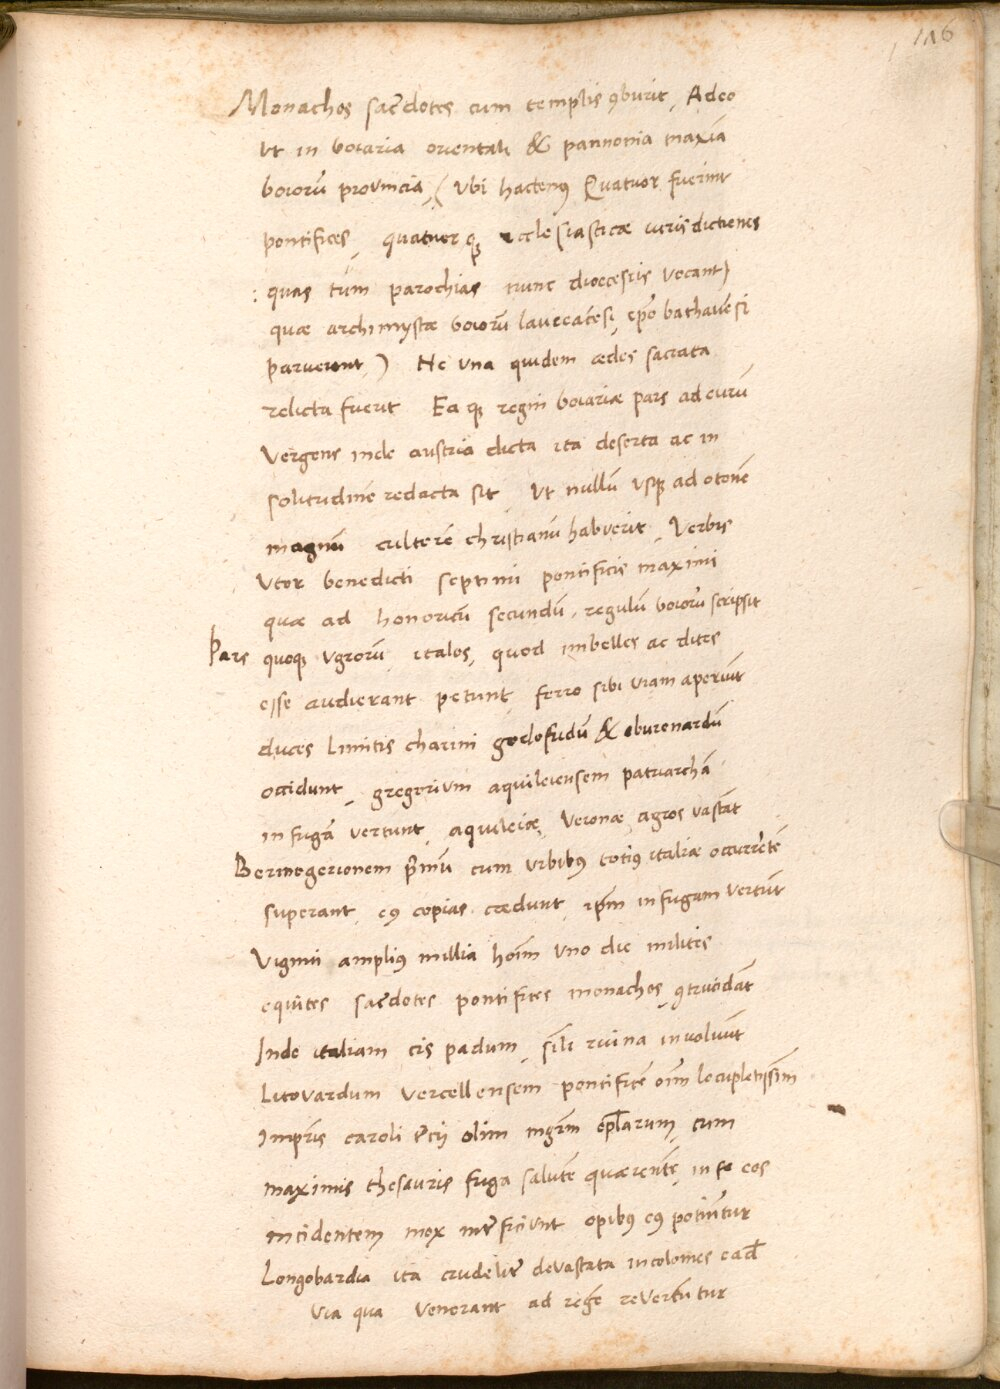 116
Monachos sac̄dotes cum templis ꝯburit, Adeo
Ut in boiaria orientali & pannonia maxīa
boiorū provincia, (Ubi hacten⁹ Quatuor fuerint
pontifices, quatuorqꝫ ecclesiasticæ iurisdictiones
: quas tum parochias nunc dioecesris vocant)
quæ archimystæ boiorū laureacēsi, ep̄o bathavēsi
paruerunt,) Ne una quidem ædes sacrata
relicta fuerit Ea qꝫ regni boiariæ pars ad eurū
Vergens inde austria dicta ita deserta ac in
solitudinē redacta sit, Ut nullū usqꝫ ad otonē
magnū cultorē christianū habuerit, Verbis
Utor benedicti septimi pontificis maximi
quæ ad honoricū secundū, regulū boiorū scripsit
Pars quoqꝫ Ugrorū, italos, quod imbelles ac dites
esse audierant petunt, ferro sibi viam aperiūt
duces Limitis charini godofridū & eburenardū
occidunt, gregorium aquileiensem patriarchā
in fugā vertunt, aquileiæ, Veronæ agros vastāt
Beringerionem p̄mū cum urbibus toti⁹ italiæ occurrētē
superant, ei⁹ copias cædunt, ip̄m in fugam vertūt
Viginti amplius millia hoīm uno die milites
equites sac̄dotes pontifices monachos, ꝯtrucidāt
Inde italiam cis padum, sīli ruina involuūt
Litovardum vercellensem pontificē oīm locupletissim
Imp̄ris caroli t̄cij olim mgr̄m ep̄larum, cum
maximis thesauris fuga salutē quærentē, in se eos
incidentem mox int̄ficiunt opibus ei⁹ potiūtur
Longobardia ita crudelit̄ devastata incolomes ead̄
via qua venerant ad regē revertūtur